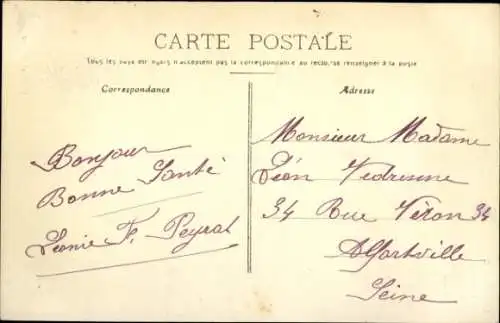 CARTE POSTALE
Tous les pays étrangers n'acceptent pas la correspondance au recto, se renseigner à la poste
Correspondance
Adresse
Bonjour
Bonne Santé
Léonie F. Peyrat
Monsieur Madame
Léon Vedrenne
34 Rue Véron 34
Alfortville
Seine